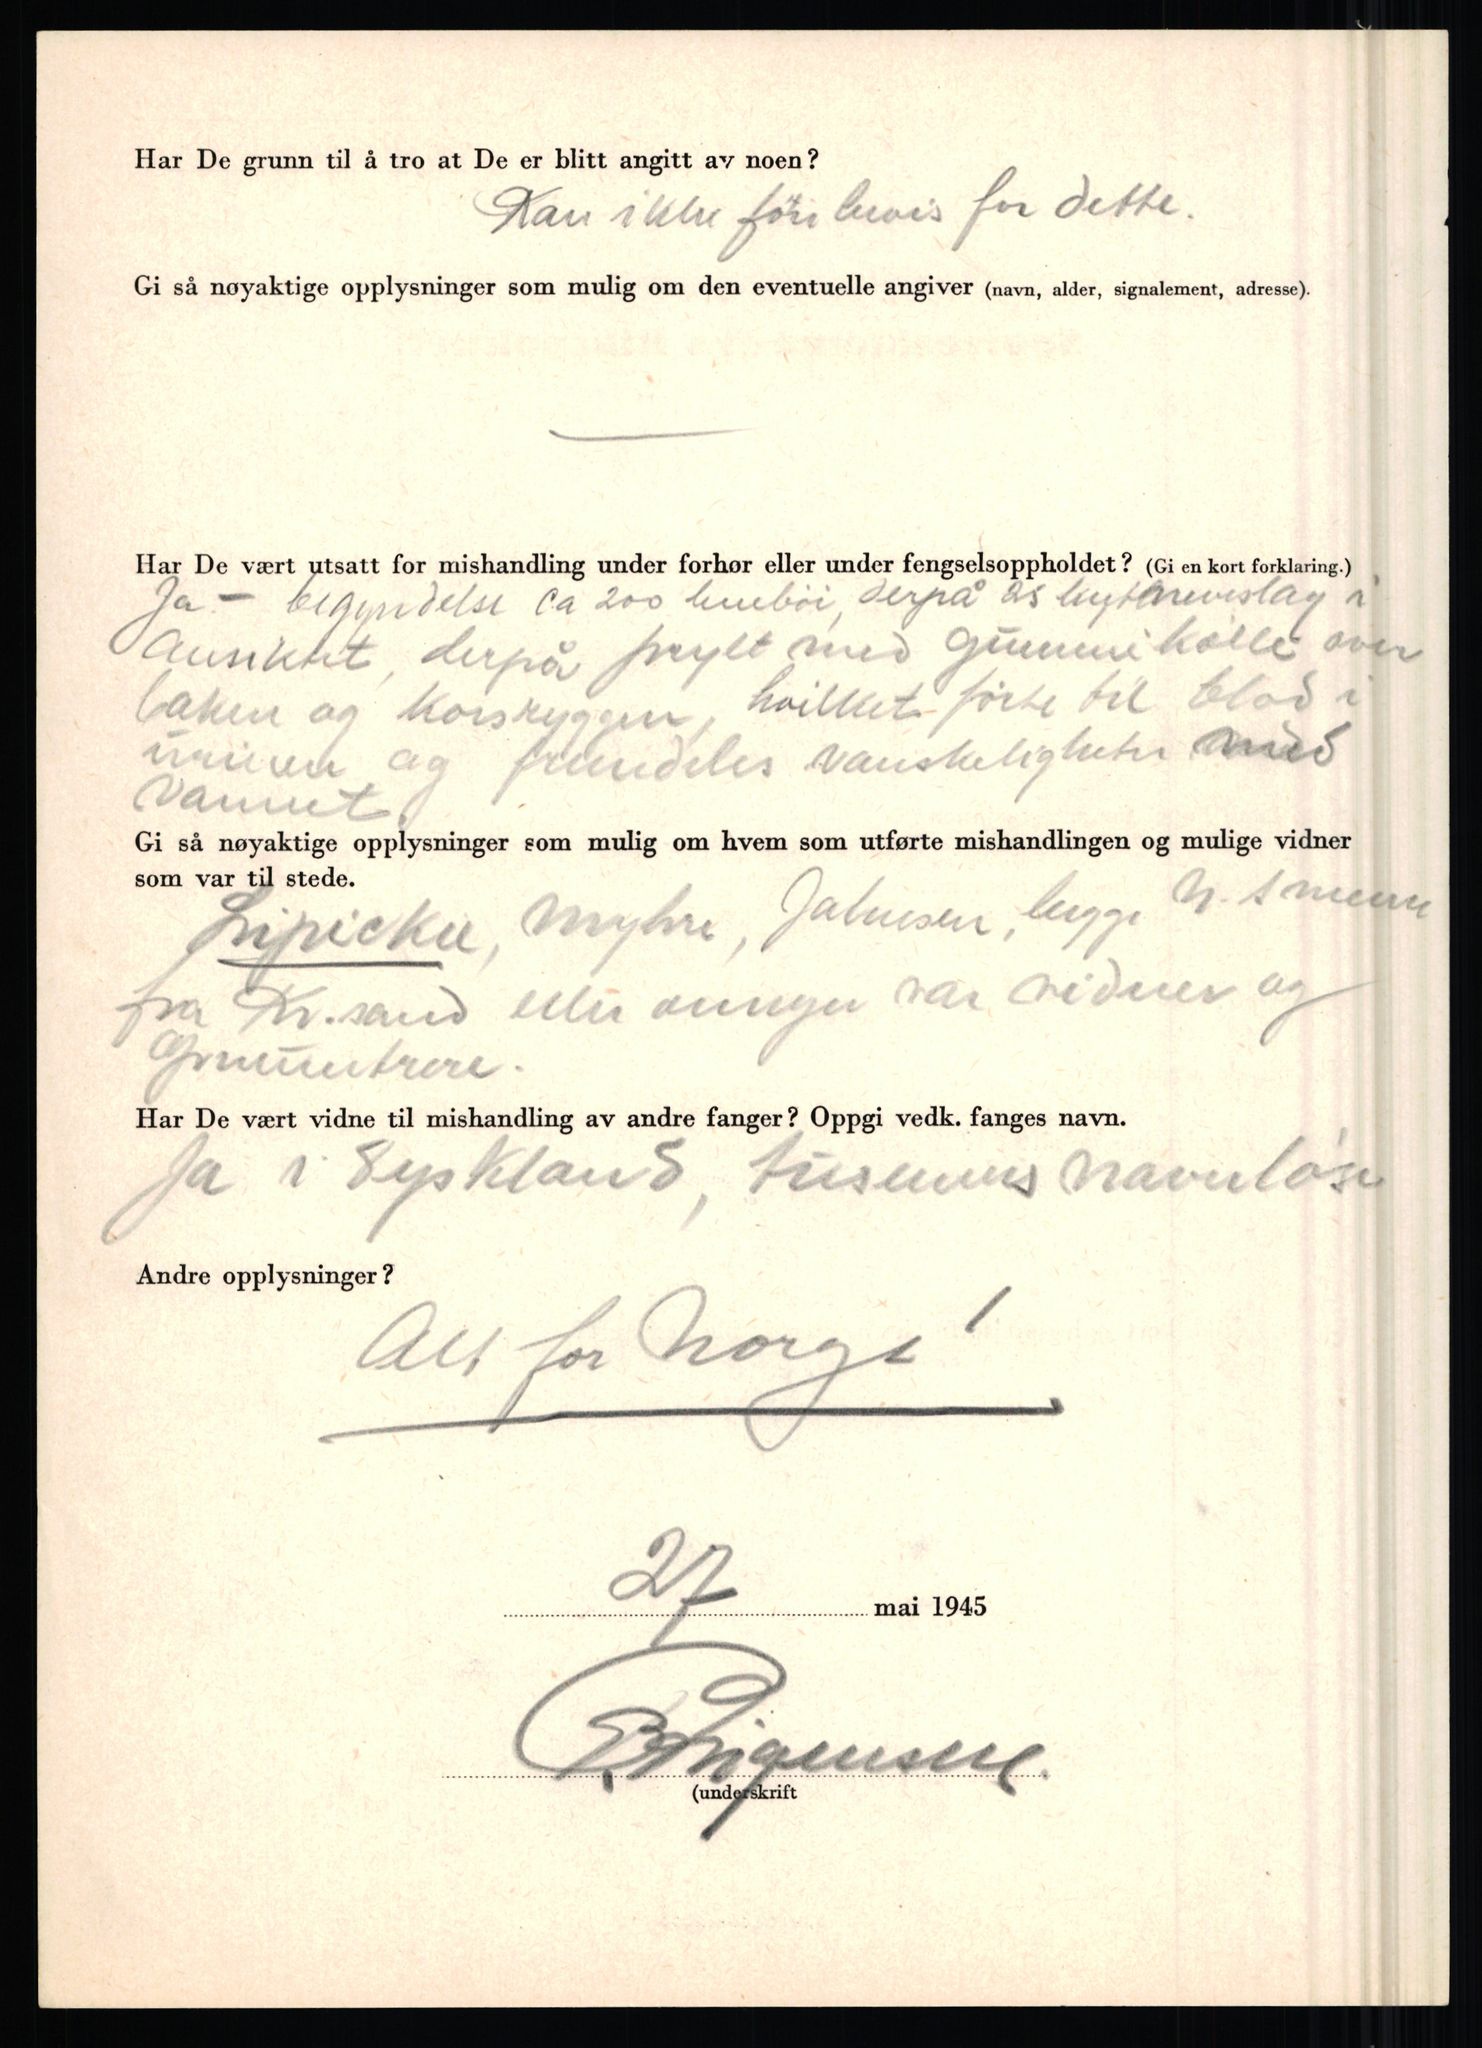 Har De grunn til å tro at De er blitt angitt av noen?
Kan ikke före bevis for dette.
Gi så nøyaktige opplysninger som mulig om den eventuelle angiver (navn, alder, signalement, adresse).
Har De vært utsatt for mishandling under forhør eller under fengselsoppholdet? (Gi en kort forklaring.)
Ja - begyndelse ca 200 knebøi, derpå 25 knytneveslag i
Ansiktet, derpå prylt med Gummikølle over
baken og Korsryggen, hvilket förte til blod i
urinen og fremdeles vanskeligheter med
vannet.
Gi så nøyaktige opplysninger som mulig om hvem som utførte mishandlingen og mulige vidner
som var til stede.
Lipicki, Myhre, Jakobsen, begge N.S menn
fra Kr.sand eller omegn var vidner og
Har De vært vidne til mishandling av andre fanger? Oppgi vedk. fanges navn.
Ja i Tyskland, tusenvis navnløse
Andre opplysninger?
Alt for Norge!
27 mai 1945
(underskrift